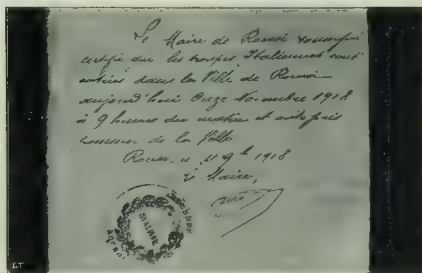 Le Maire de Rocroi soussigné
certifie que les troupes Italiennes sont
entrées dans la Ville de Rocroi
aujourd'hui Onze Novembre 1918
à 9 heures du matin et ont pris
de la Ville
Rocroi, le 11 9b 1918
le Maire,
L.T